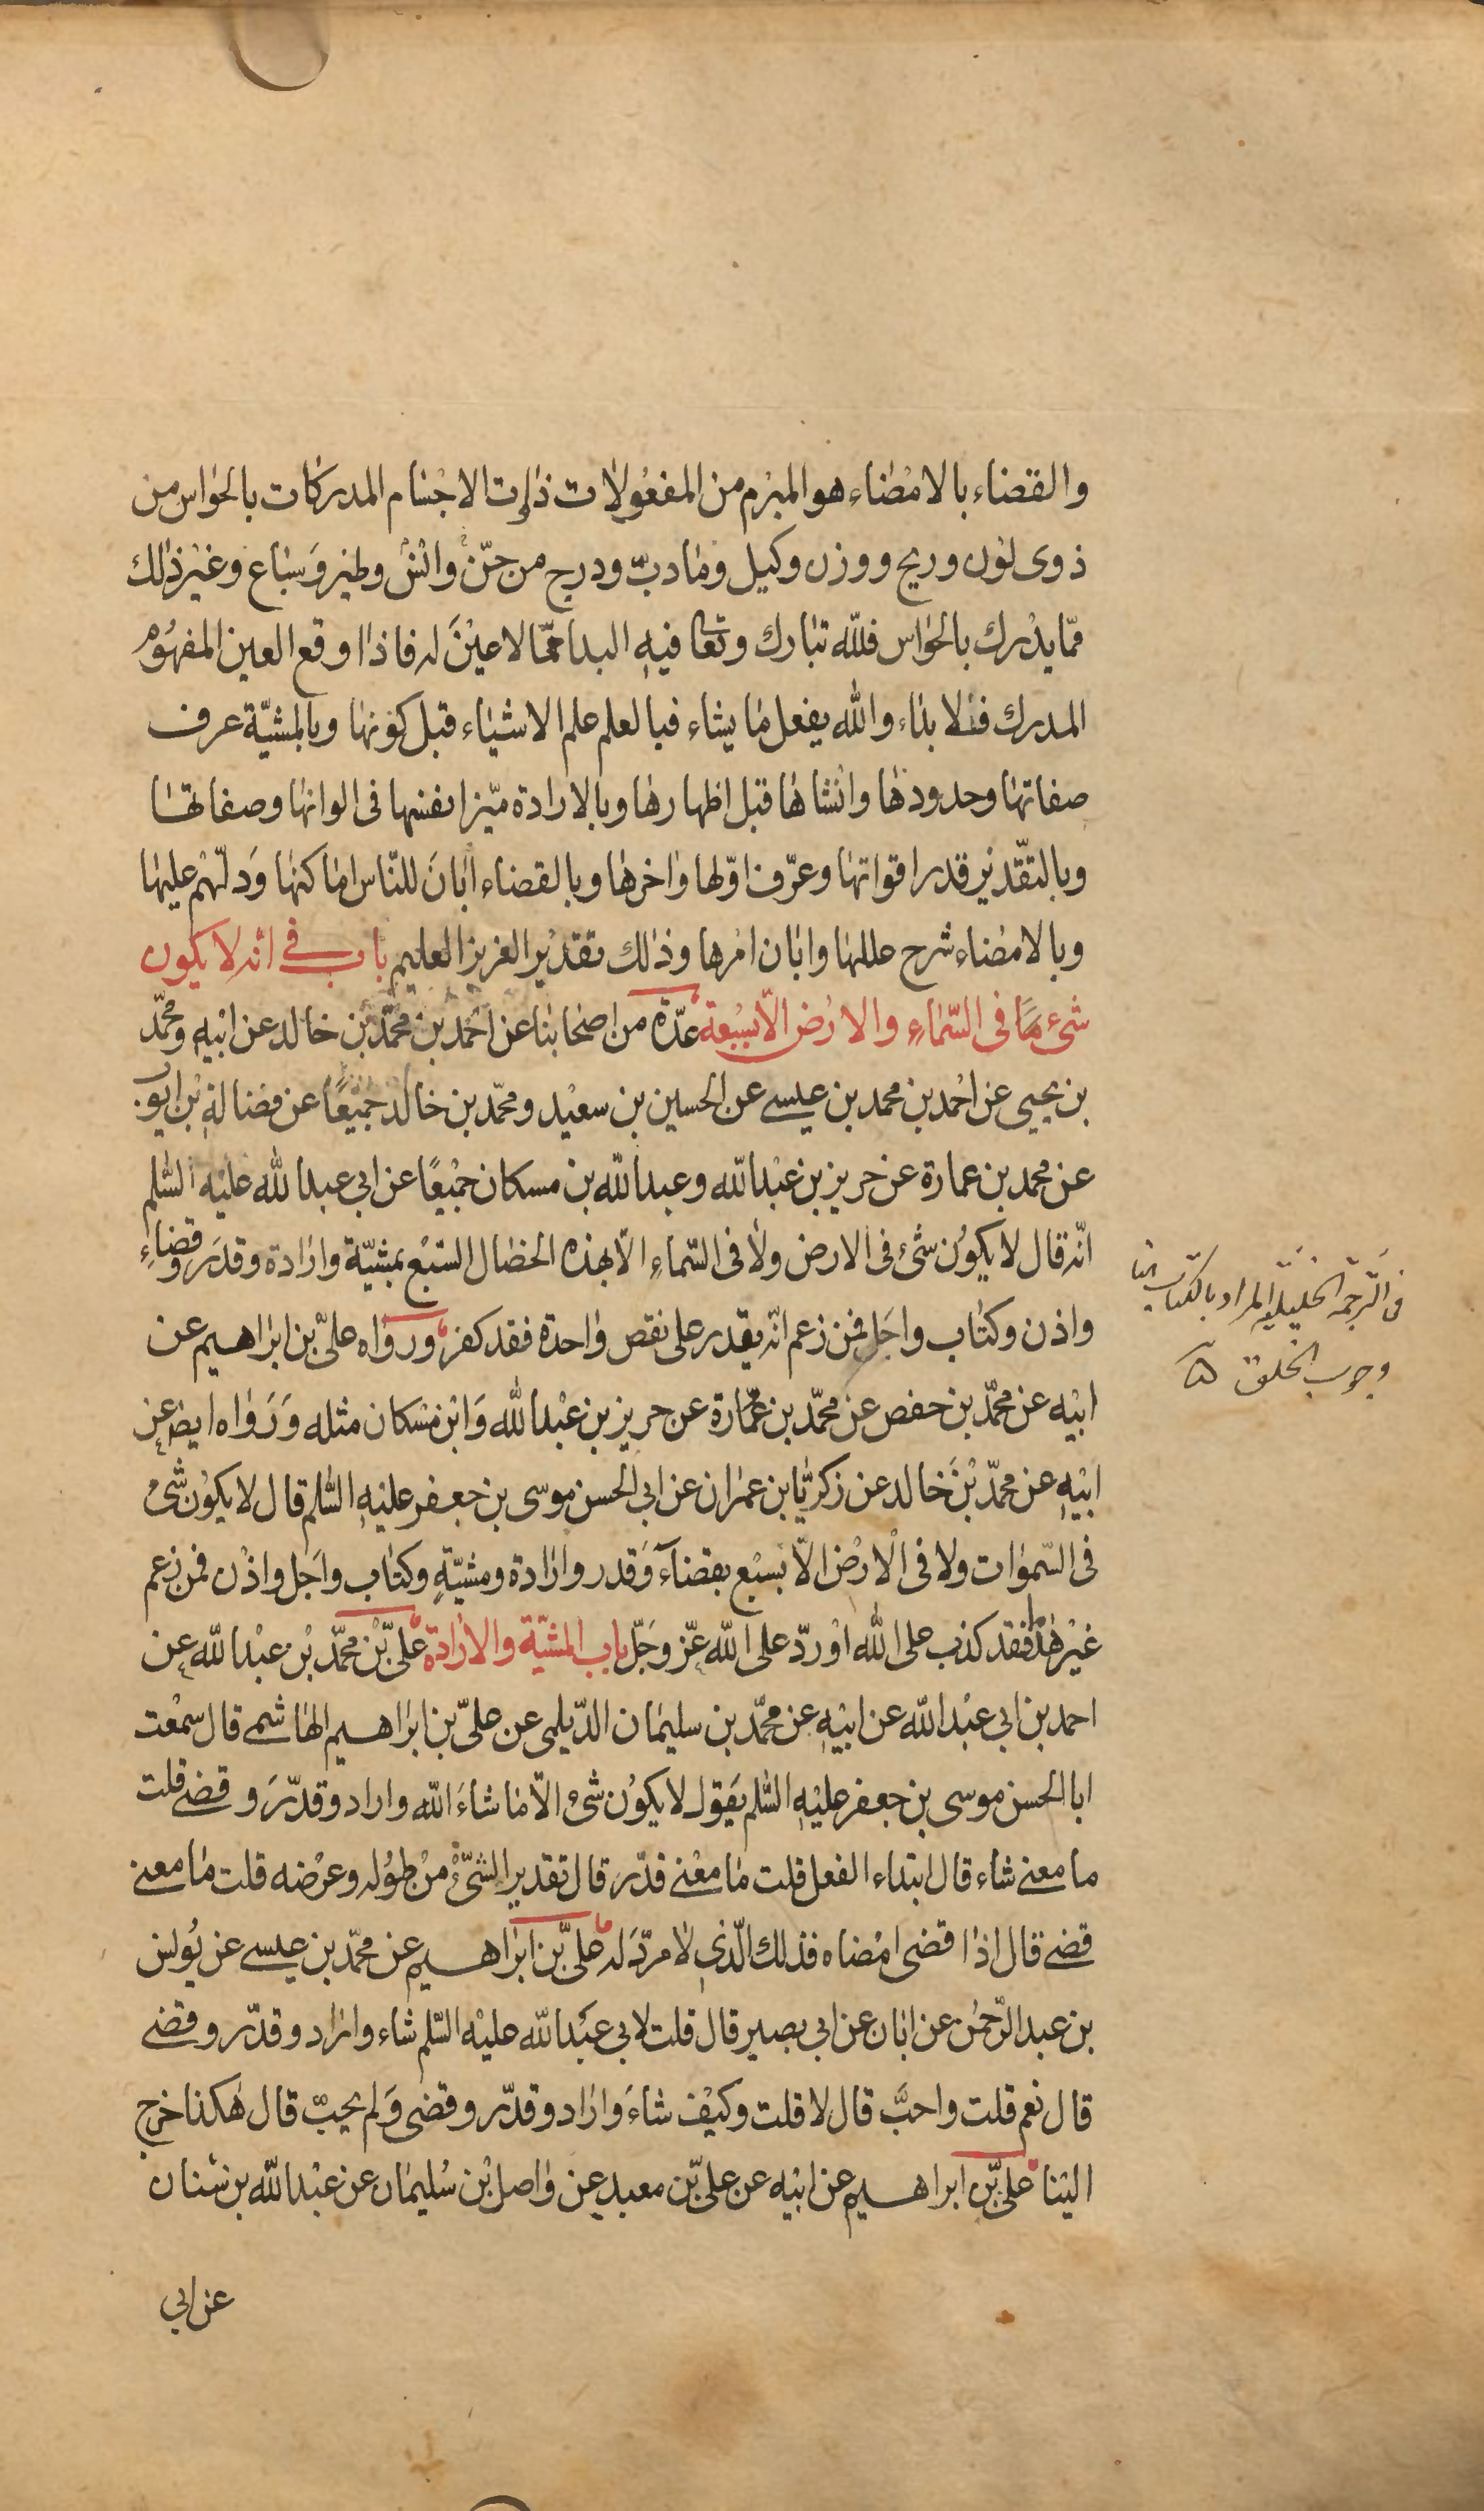 والقضاء بالامضاء هو المبرم من المفعولات ذوات الاجسام المدركات بالحواس من
ذوى لون وريح ووزن وكيل وما دبّ ودرج من جنّ وانس وطير وسباع وغير ذلك
ممّا يدرك بالحواس فلله تبارك وتعا فيه البدا ممّا لا عين له فاذا وقع العين المفهوم
المدرك فلا بداء والله يفعل ما يشاء فبالعلم علم الاشياء قبل كونها وبالمشيّة عرف
صفاتها وحدودها وانشاها قبل اظهارها وبالارادة ميّز انفسها فى الوانها وصفاتها
وبالتقدير قدر اقواتها وعرّف اوّلها واخرها وبالقضاء ابان للنّاس اماكنها ودلّهم عليها
وبالامضاء شرح عللها وابان امرها وذلك تقدير العزيز العليم باب فى انه لا يكون
شىء ما فى السّماء والارض الّا بسبعة عدّة من اصحابنا عن احمد بن محمّد بن خالد عن ابيه ومحمّد
بن يحيى عن احمد بن محمد بن عيسى عن الحسين بن سعيد ومحمّد بن خالد جميعًا عن فضالة بن ايوب
عن محمد بن عمارة عن حريز بن عبد الله وعبد الله بن مسكان جميعًا عن ابى عبد الله عليه السّلم
انّه قال لا يكون شئ فى الارض ولا فى السّماء الّا بهذه الخصال السّبع بمشيّة وارادة وقدر وقضاء
واذن وكتاب واجل فمن زعم انّه يقدر على نقص واحدة فقد كفر ورواه علىّ بن ابراهيم عن
ابيه عن محمّد بن حفص عن محمّد بن عمّارة عن حريز بن عبد الله وابن مسكان مثله ورواه ايض عن
ابيه عن محمّد بن خالد عن زكريّا بن عمران عن ابى الحسن موسى بن جعفر عليه السّلم قال لا يكون شئ
فى السّموات ولا فى الارض الّا بسبع بقضآء وقدر وارادة ومشيّة وكتاب واجل واذن فمن زعم
غير هذا فقد كذب على الله او ردّ على الله عزّ وجلّ باب المشيّة والارادة علىّ بن محمّد بن عبد الله عن
احمد بن ابى عبد الله عن ابيه عن محمّد بن سليمان الدّيلمى عن علىّ بن ابراهيم الهاشمى قال سمعت
ابا الحسن موسى بن جعفر عليه السّلم يقول لا يكون شئ الّا ما شاء الله واراد وقدّر وقضى قلت
ما معنى شاء قال ابتداء الفعل قلت ما معنى قدّر قال تقدير الشّئ من طوله وعرضه قلت ما معنى
قضى قال اذا قضى امضاه فذلك الّذى لا مردّ له علىّ بن ابراهيم عن محمّد بن عيسى عن يونس
بن عبد الرّحمن عن ابان عن ابى بصير قال قلت لابى عبد الله عليه السّلم شاء واراد وقدّر وقضى
قال نعم قلت واحبّ قال لا قلت وكيف شاء واراد وقدّر وقضى ولم يحبّ قال هكذا خرج
الينا علىّ بن ابراهيم عن ابيه عن علىّ بن معبد عن واصل بن سليمان عن عبد الله بن سنان
عن ابى
فى الترجمة الخليلية المراد بالكتاب
وجوب الخلق